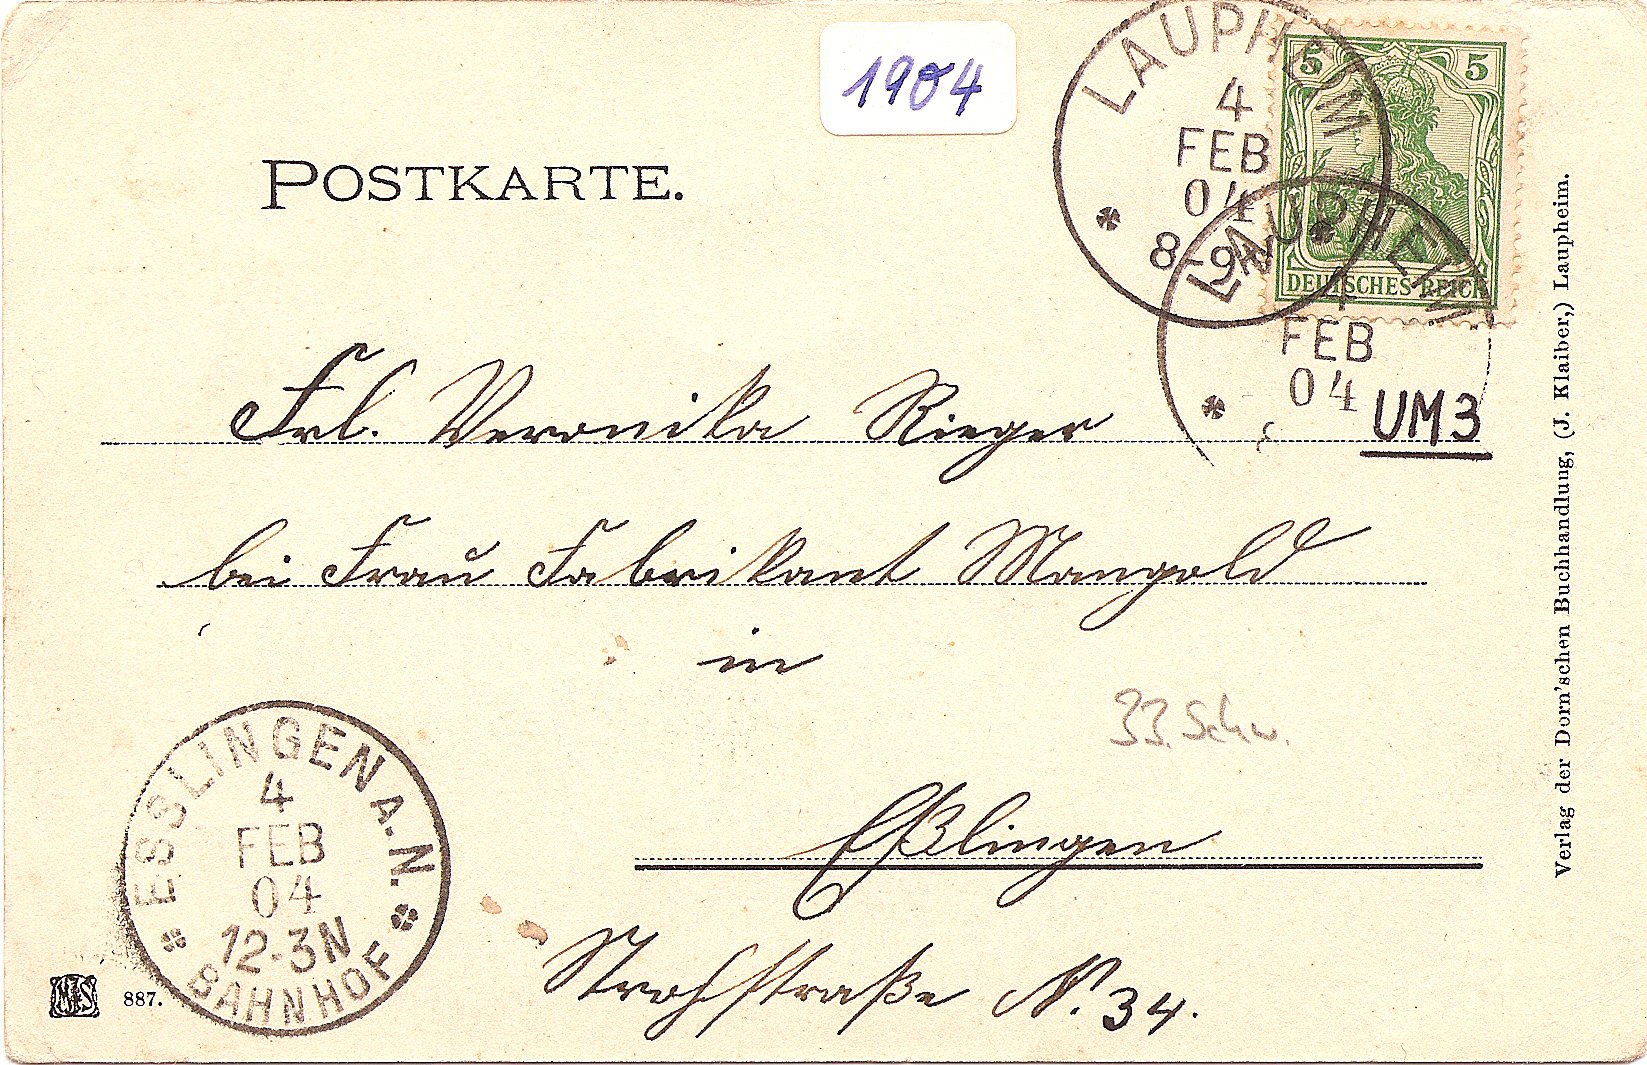 1904
LAUPHEIM
4
FEB
04
8-9V
5 5
DEUTSCHES REICH
LAUPHEIM
4
FEB
04
UM3
POSTKARTE.
Frl. Veronika Rieger
bei Frau Fabrikant Mangold
in
33. Schw.
Eßlingen
Strohstraße N. 34.
ESSLINGEN A. N.
4
FEB
04
12-3N
BAHNHOF
887.
Verlag der Dorn'schen Buchhandlung, (J. Klaiber,) Laupheim.